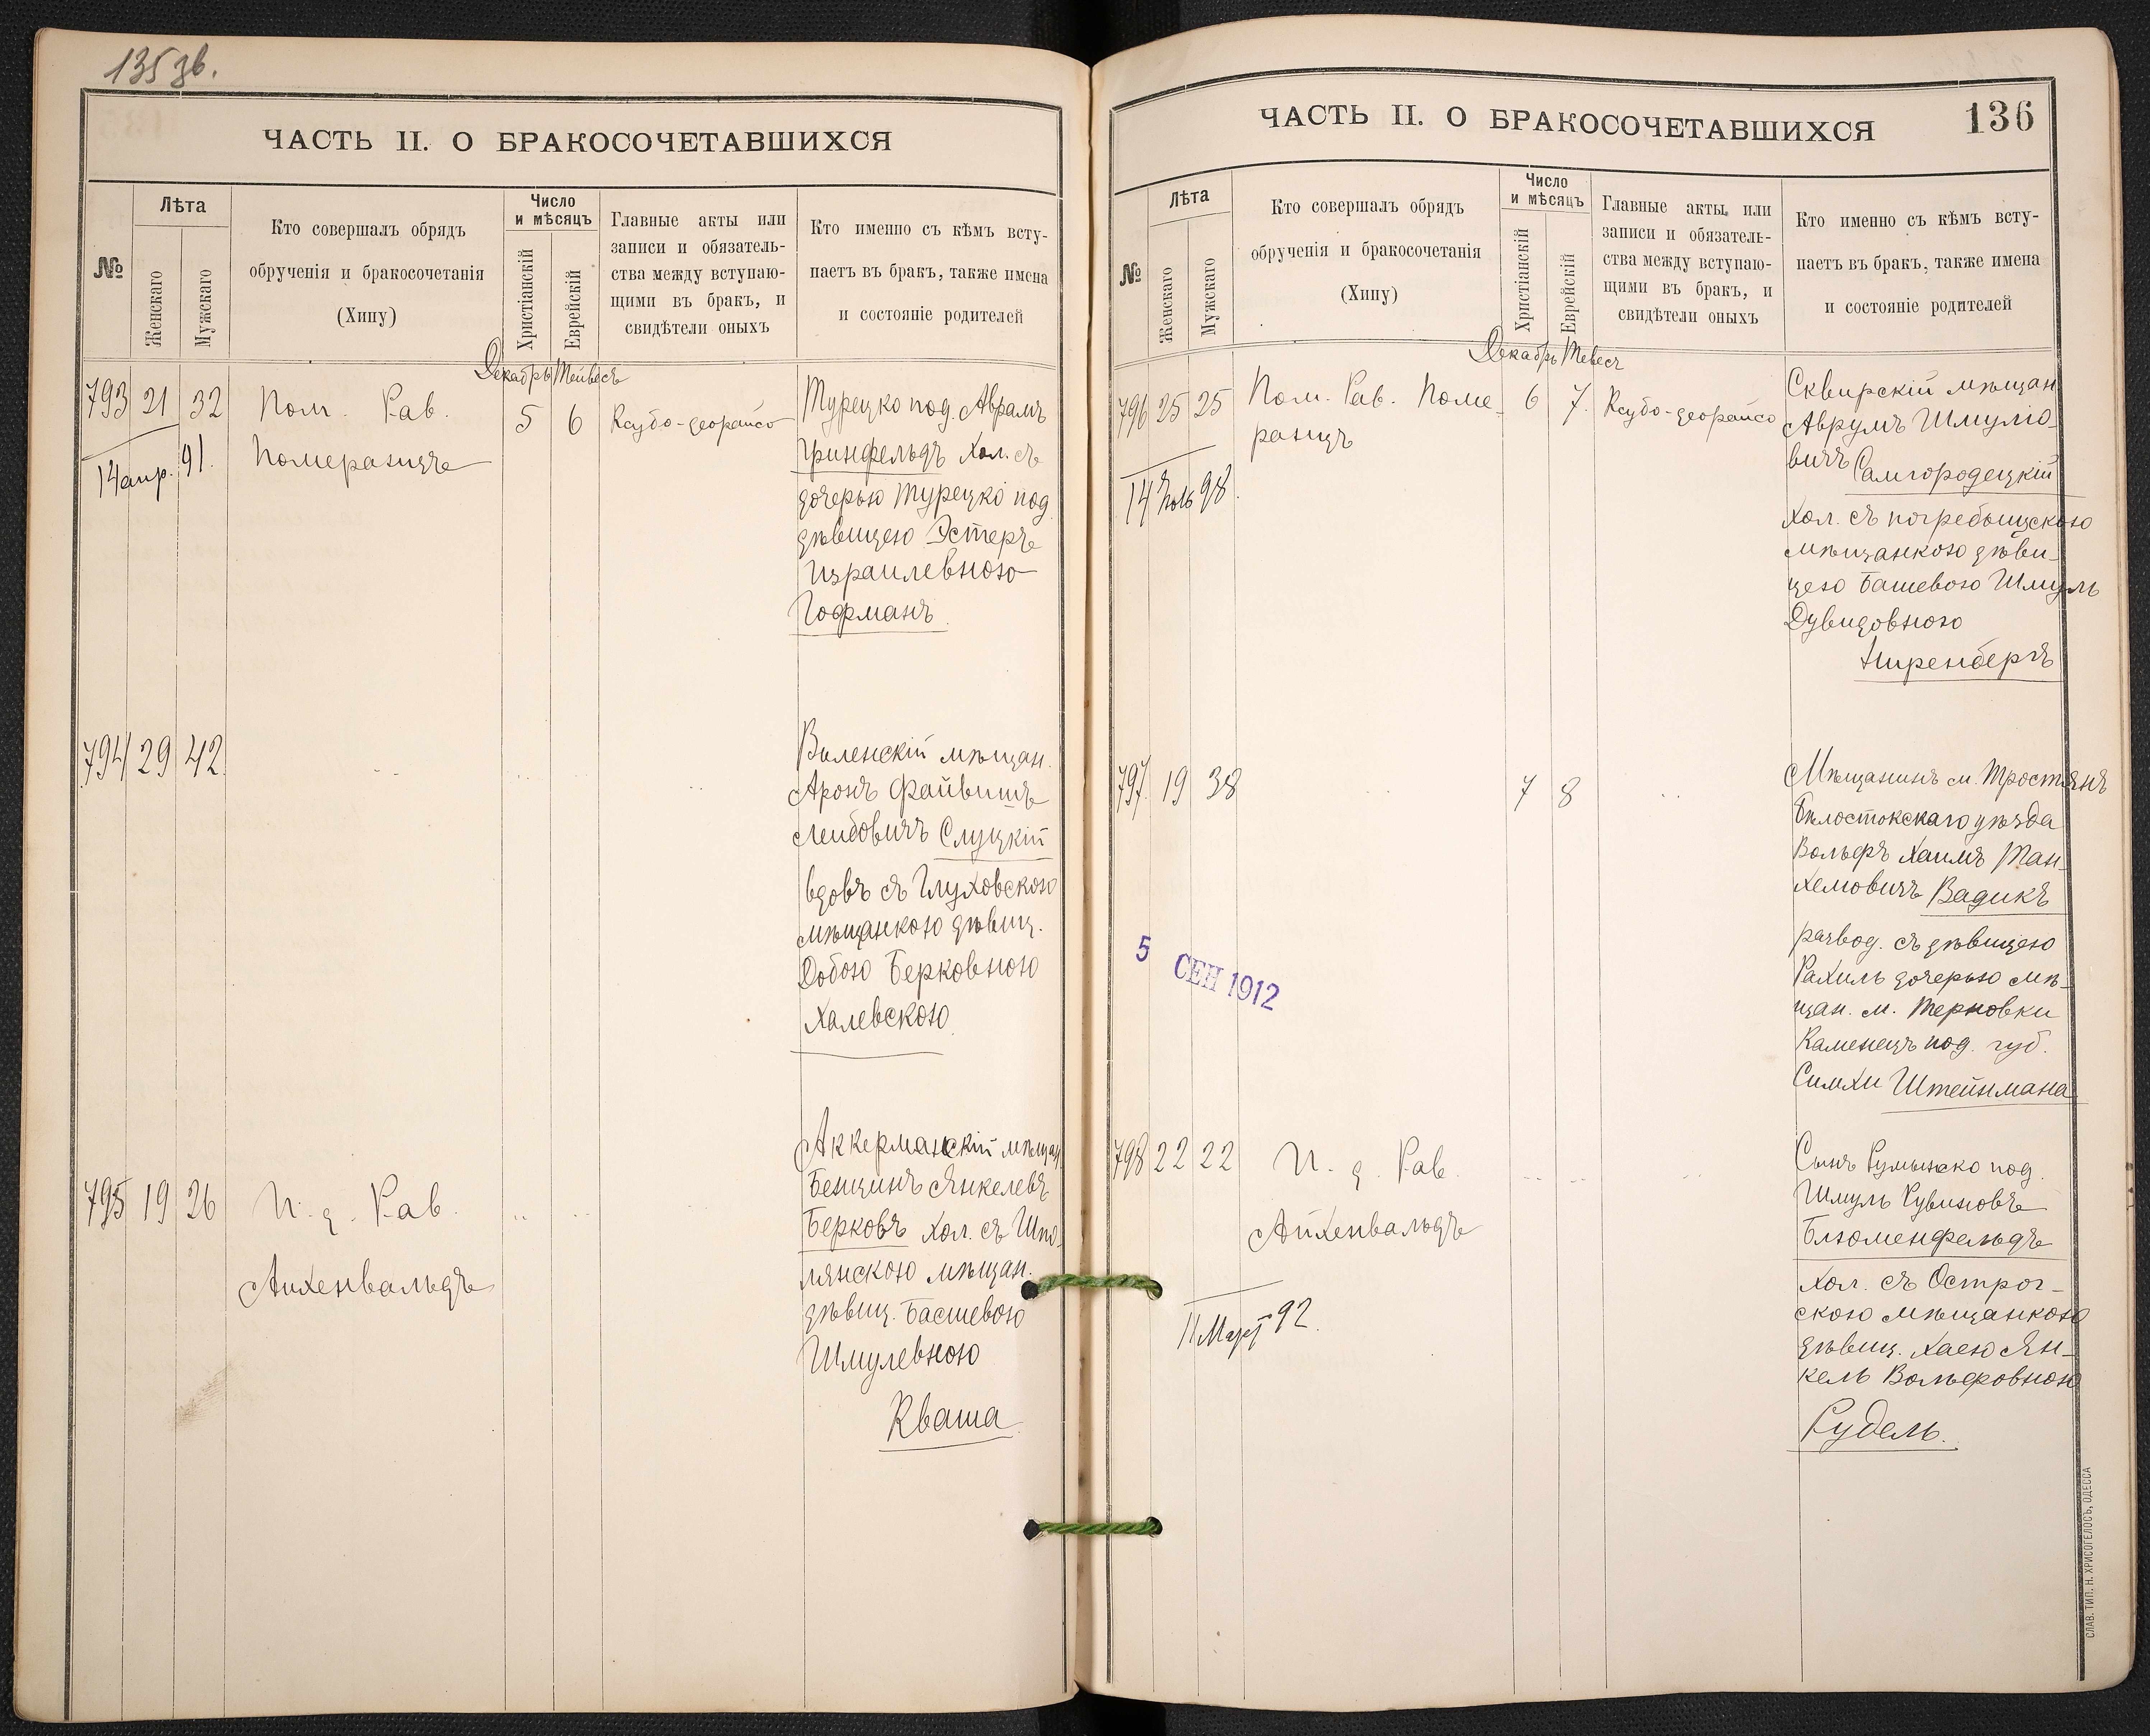 135 зв.
ЧАСТЬ II. О БРАКОСОЧЕТАВШИХСЯ
№
Лѣта
Женскаго
Мужскаго
Кто совершалъ обрядъ
обрученія и бракосочетанія
(Хипу)
Число
и мѣсяцъ
Христіанскій
Еврейскій
Главные акты или
записи и обязатель-
ства между вступаю-
щими въ бракъ, и
свидѣтели оныхъ
Кто именно съ кѣмъ всту-
паетъ въ бракъ, также имена
и состояніе родителей
Декабрь Тейвесъ
793 21 32
Пом. Рав.
Померанцъ
5 6
Ксубо-деорайсо
14 апр. 91.
Турецко под. Аврамъ
Гринфельдъ хол. съ
дочерью Турецко под
дѣвицею Эстеръ
Израилевною
Гофманъ
794 29 42
Виленскій мѣщан.
Аронъ Файвишъ
Лейбовичъ Слуцкій
вдовъ съ Глуховскою
мѣщанкою дѣвиц.
Добою Берковною
Халевскою
795 19 26
И. д. Рав.
Айхенвальдъ
Аккерманскій мѣщан
Бенціинъ Янкелевъ
Берковъ хол. съ Шпо-
лянскою мѣщан.
дѣвиц. Басшевою
Шмулевною
Кваша
136
ЧАСТЬ II. О БРАКОСОЧЕТАВШИХСЯ
№
Лѣта
Женскаго
Мужскаго
Кто совершалъ обрядъ
обрученія и бракосочетанія
(Хипу)
Число
и мѣсяцъ
Христіанскій
Еврейскій
Главные акты или
записи и обязатель-
ства между вступаю-
щими въ бракъ, и
свидѣтели оныхъ
Кто именно съ кѣмъ всту-
паетъ въ бракъ, также имена
и состояніе родителей
Декабрь Тевесъ
796 25 25
Пом. Рав. Поме-
ранцъ
6 7.
Ксубо-деорайсо
14 98.
Сквирскій мѣщан
Аврумъ Шмулю-
вичъ Самгородецкій
хол. съ погребыщскою
мѣщанкою дѣви-
цею Башевою Шмуль
Дувидовною
Ниренбергъ
797. 19 38
7 8
Мѣщанинъ м. Тростянъ
Бѣлостокскаго уѣзда
Вольфъ Хаимъ Тан-
хелювичъ Вадикъ
развод. съ дѣвицею
Рахиль дочерью мѣ-
щан. м. Терновки
Каменецъ под. губ.
Симхи Штейнмана
5 СЕН 1912
798 22 22
И. д. Рав.
Айхенвальдъ
11 Март 92.
Сынъ Румынско под
Шмуль Рувиновъ
Блюменфельдъ
хол. съ Острог-
скою мѣщанкою
дѣвиц. Хаею Ян-
кель Вольфовною
Рудель.
СЛАВ. ТИП. Н. ХРИСОГЕЛОСЪ, ОДЕССА